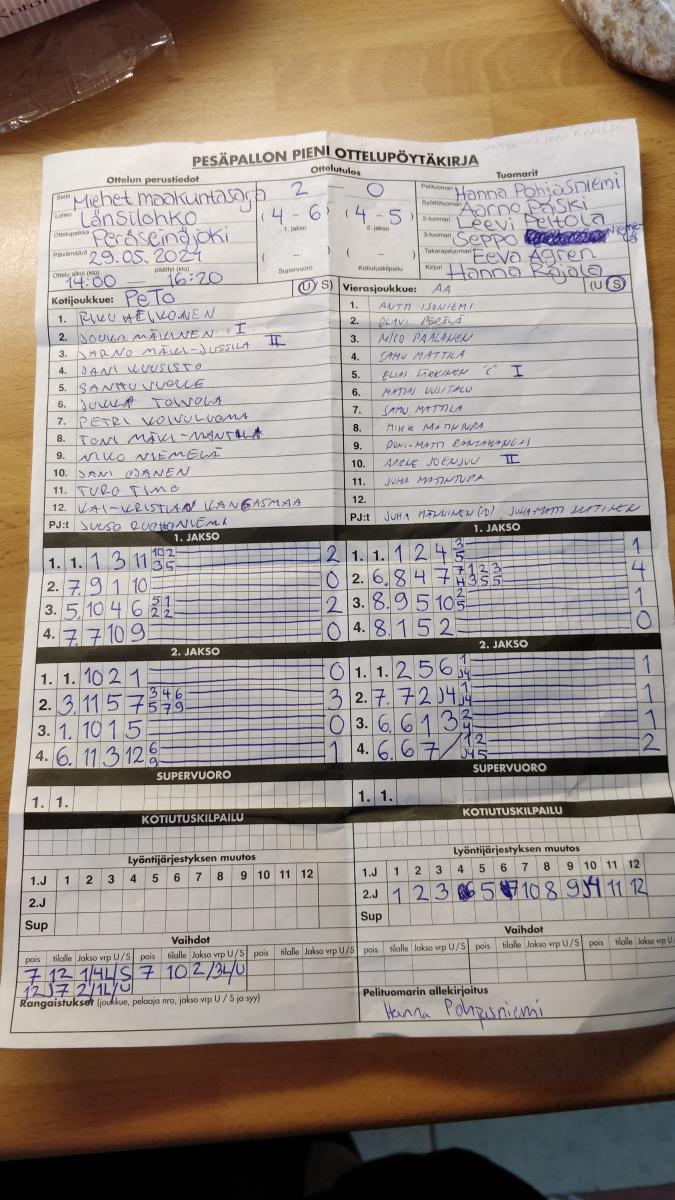 PESÄPALLON PIENI OTTELUPÖYTÄKIRJA
Ottelun perustiedot Ottelutulos Tuomarit
Sarja Miehet maakuntasarja 2 — 0 Pelituomari Hanna Pohjasniemi
Lohko Länsilohko (4 - 6) (4 - 5) Syöttötuomari Aarno Paski
1. jakso 2. jakso 2-tuomari Leevi Peltola
Ottelupaikka Peräseinäjoki 3-tuomari Seppo
Päivämäärä 29.05.2024 ( - ) ( - ) Takarajatuomari Eeva Ågren
Ottelu alkoi (klo) 14:00 päättyi (klo) 16:20 Supervuoro Kotiutuskilpailu Kirjuri Hanna Rajala
Kotijoukkue: PeTo (U S) Vierasjoukkue: AA (U S)
1. RIKU HEIKONEN 1. ANTTI IJONIEMI
2. JOUKO MÄKINEN I 2. OLAVI PERÄLÄ
3. JARNO MÄKI-JUSSILA II 3. MICO PAALANEN
4. JANI KUUSISTO 4. SAMU MATTILA
5. SANTTU VUOLLE 5. ELIAS SÄRKINEN "C" I
6. JUKKA TOIVOLA 6. MATIAS UUSITALO
7. PETRI KOIVULUOMA 7. SAMU MATTILA
8. TONI MÄKI-MANTILA 8.
9. NIKO NIEMELÄ 9. DONI-MATTI RANTAKANGAS
10. JANI OJANEN 10. AAPELI JOENSUU II
11. TURO TIMO 11. JUHA MATINTUPA
12. KAI-KRISTIAN KANGASMAA 12.
PJ:t JUUSO RUOHONIEMI PJ:t JUHA MÄNNINEN (10) JUHA-MATTI
1. JAKSO 1. JAKSO
1. 1. 1 3 11 10 2 2 1. 1. 1 2 4 3 1
3 5 5
2. 7. 9 1 10 0 2. 6. 8 4 7 7 1 2 3 4
4 3 5 5
3. 5. 10 4 6 5 1 2 3. 8. 9 5 10 2 1
2 2 5
4. 7. 7 10 9 0 4. 8. 1 5 2 0
2. JAKSO 2. JAKSO
1. 1. 10 2 1 0 1. 1. 2 5 6 1 1
J4
2. 3. 11 5 7 3 4 6 3 2. 7. 7 2 J4 1 1
5 7 9 J4
3. 1. 10 1 5 0 3. 6. 6 1 3 2 1
4
4. 6. 11 3 12 6 1 4. 6. 6 7 / 1 2 2
9 J4 5
SUPERVUORO SUPERVUORO
1. 1. 1. 1.
KOTIUTUSKILPAILU KOTIUTUSKILPAILU
Lyöntijärjestyksen muutos Lyöntijärjestyksen muutos
1.J 1 2 3 4 5 6 7 8 9 10 11 12 1.J 1 2 3 4 5 6 7 8 9 10 11 12
2.J 2.J 1 2 3 6 5 7 10 8 9 J4 11 12
Sup Sup
Vaihdot Vaihdot
pois tilalle Jakso vrp U/S pois tilalle Jakso vrp U/S pois tilalle Jakso vrp U/S pois tilalle Jakso vrp U/S pois tilalle Jakso vrp U/S pois tilalle Jakso vrp U/S
7 12 1/4L/S 7 10 2/3L/U
12 J7 2/1L/U
Rangaistukset (joukkue, pelaaja nro, jakso vrp U / S ja syy) Pelituomarin allekirjoitus
Hanna Pohjasniemi